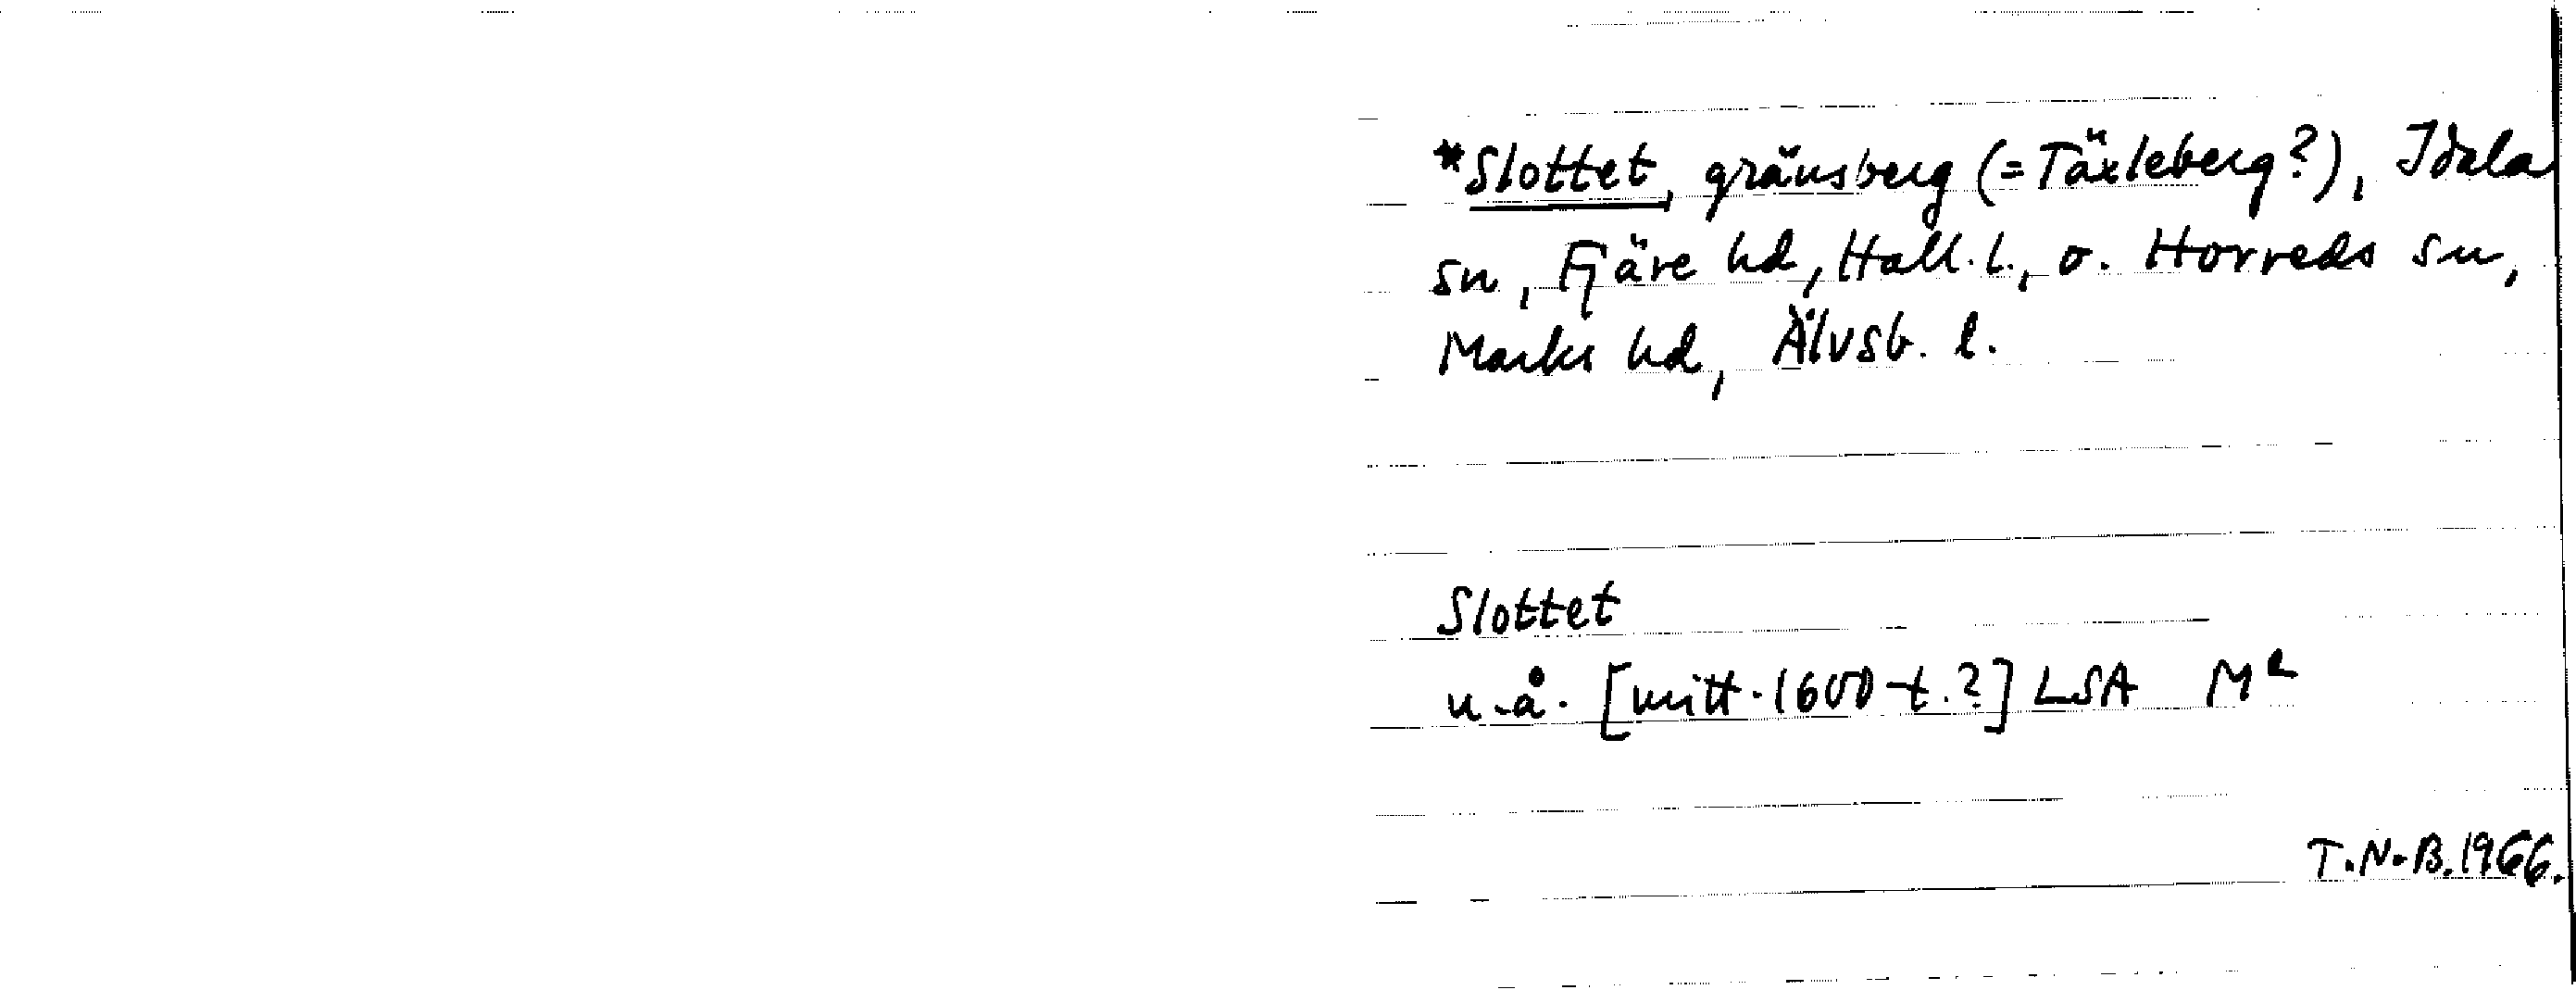 *Slottet, gränsberg (=Täxleberg?), Idala
sn, Fjäre hd, Hall. l., o. Horreds sn,
Marks hd, Älvsb. l.
Slottet
u.å. [mitt. 1600-t.?] LSA M²
T.N.B. 1966.